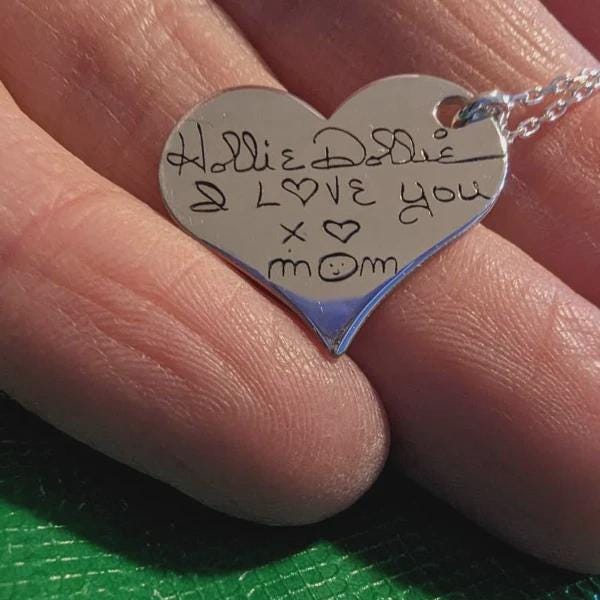 Hollie Dollie
I L♡VE you
x ♡
mom